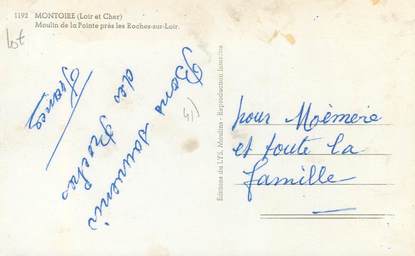 1192 MONTOIRE (Loir et Cher)
Moulin de la Pointe près les Roches-sur-Loir.
Lot
Bons souvenir
des Roches
Editions du LYS, Moulins - Reproduction interdite
pour Mémère
et toute la
famille